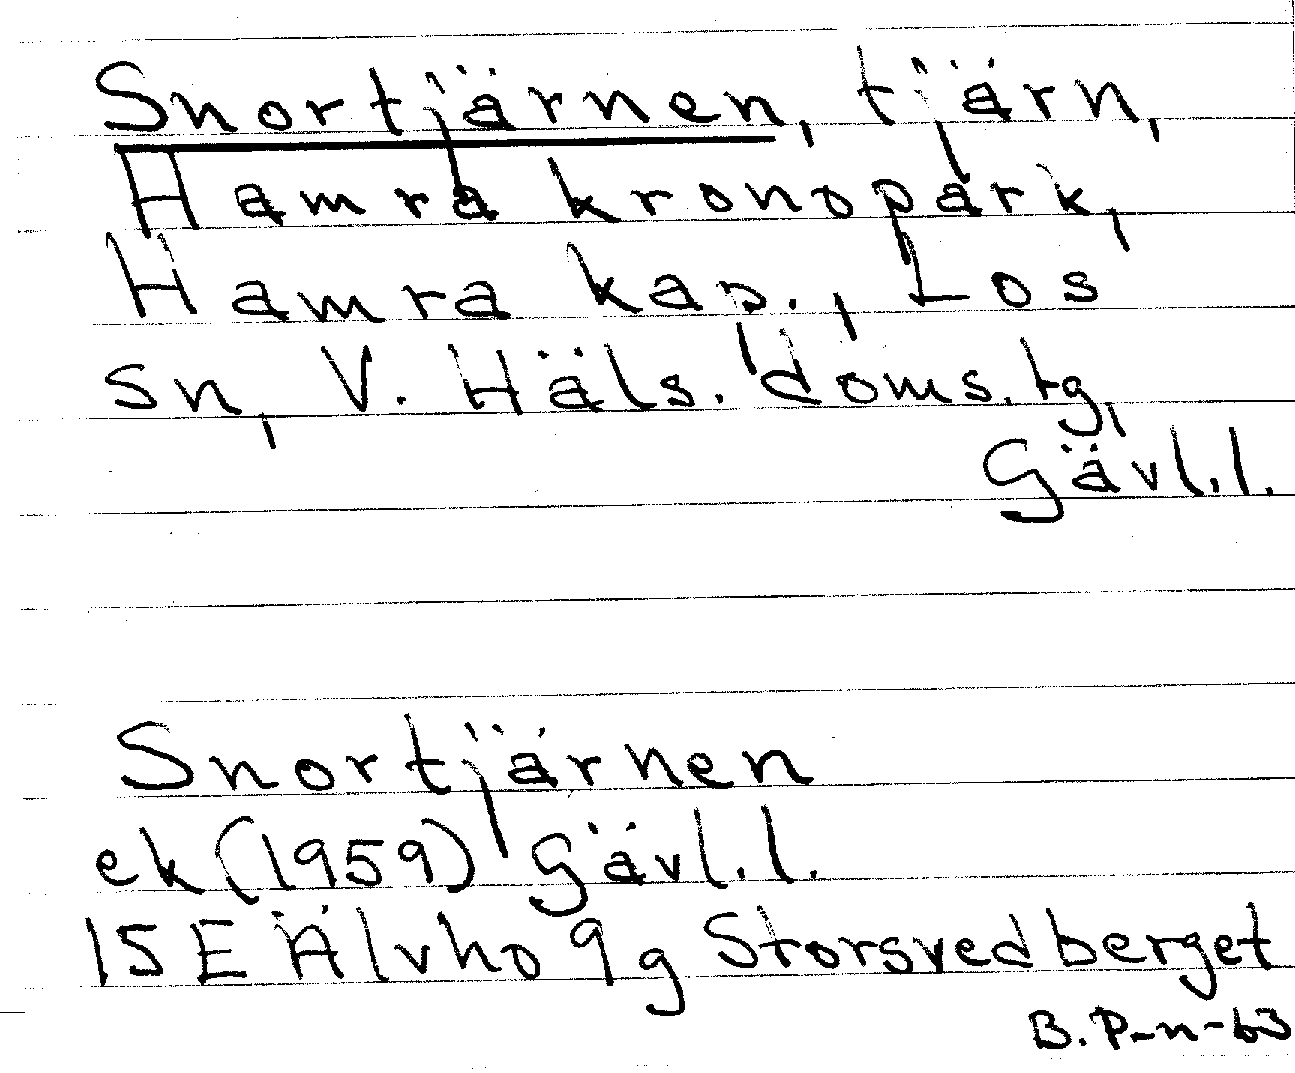 Snortjärnen, tjärn,
Hamra kronopark,
Hamra kap., Los
sn, V. Häls. doms. tg,
Gävl.l.
Snortjärnen
ek (1959) Gävl.l.
15E Älvho 9g Storsvedberget
B. P-n-63